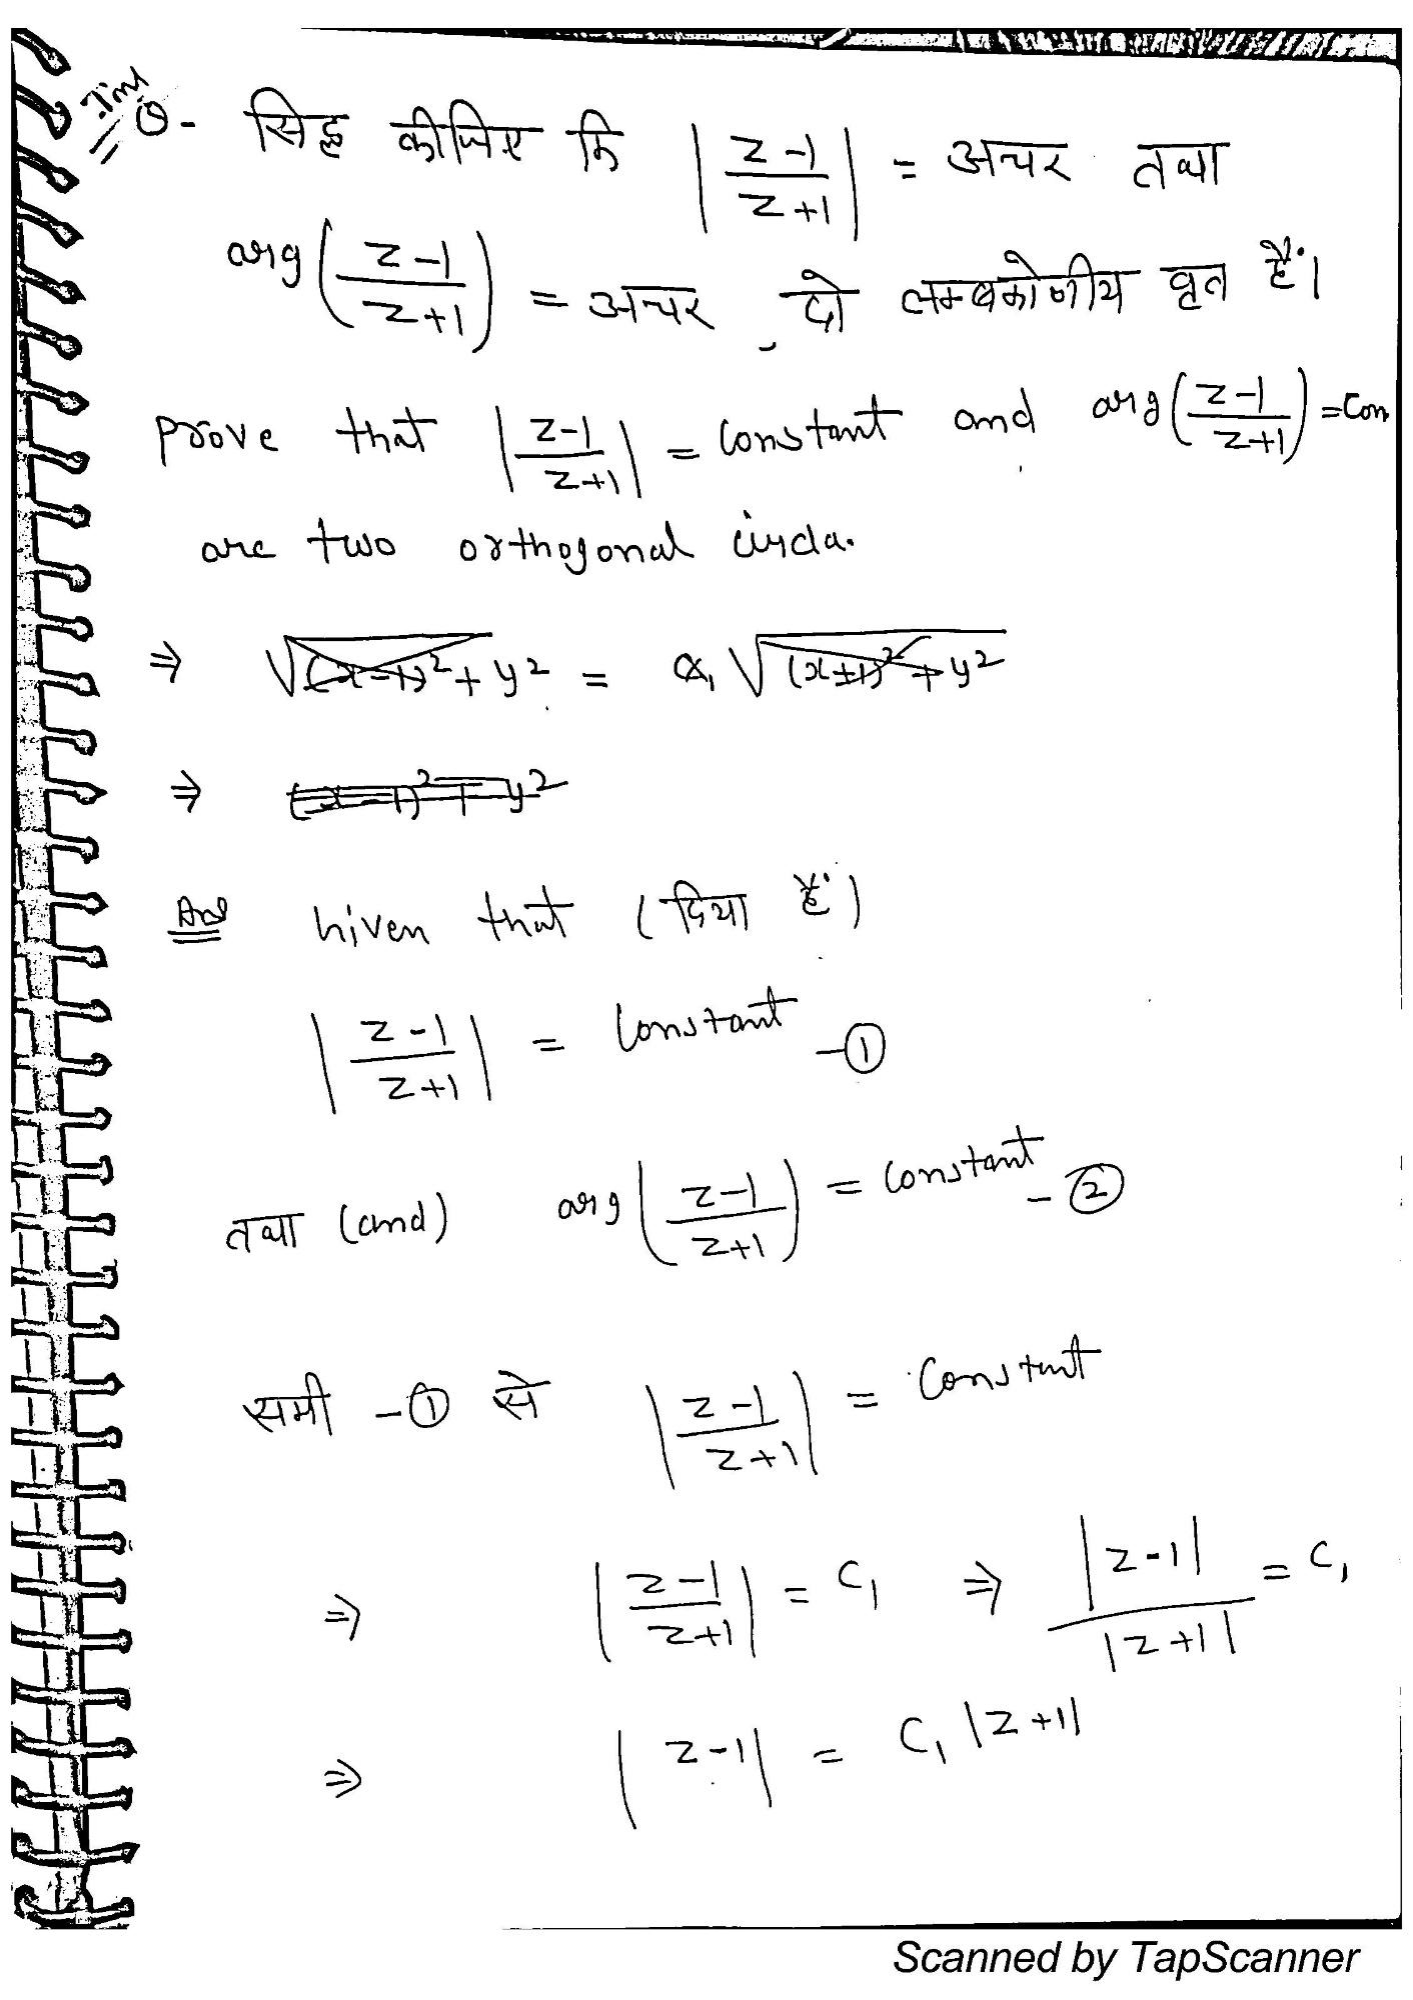 Imt
Q- सिद्ध कीजिए कि |z-1/z+1| = अचर तथा
arg(z-1/z+1) = अचर, दो लम्बकोणीय वृत हैं।
prove that |z-1/z+1| = constant and arg(z-1/z+1) = Con
are two orthogonal circle.
⇒ √(x-1)²+y² = α₁ √(x+1)²+y²
⇒ (x-1)²+y²
Ans Given that (दिया हैं)
|z-1/z+1| = Constant -①
तथा (and) arg(z-1/z+1) = Constant -②
समी -① से |z-1/z+1| = Constant
⇒ |z-1/z+1| = C₁ ⇒ |z-1|/|z+1| = C₁
⇒ |z-1| = C₁ |z+1|
Scanned by TapScanner